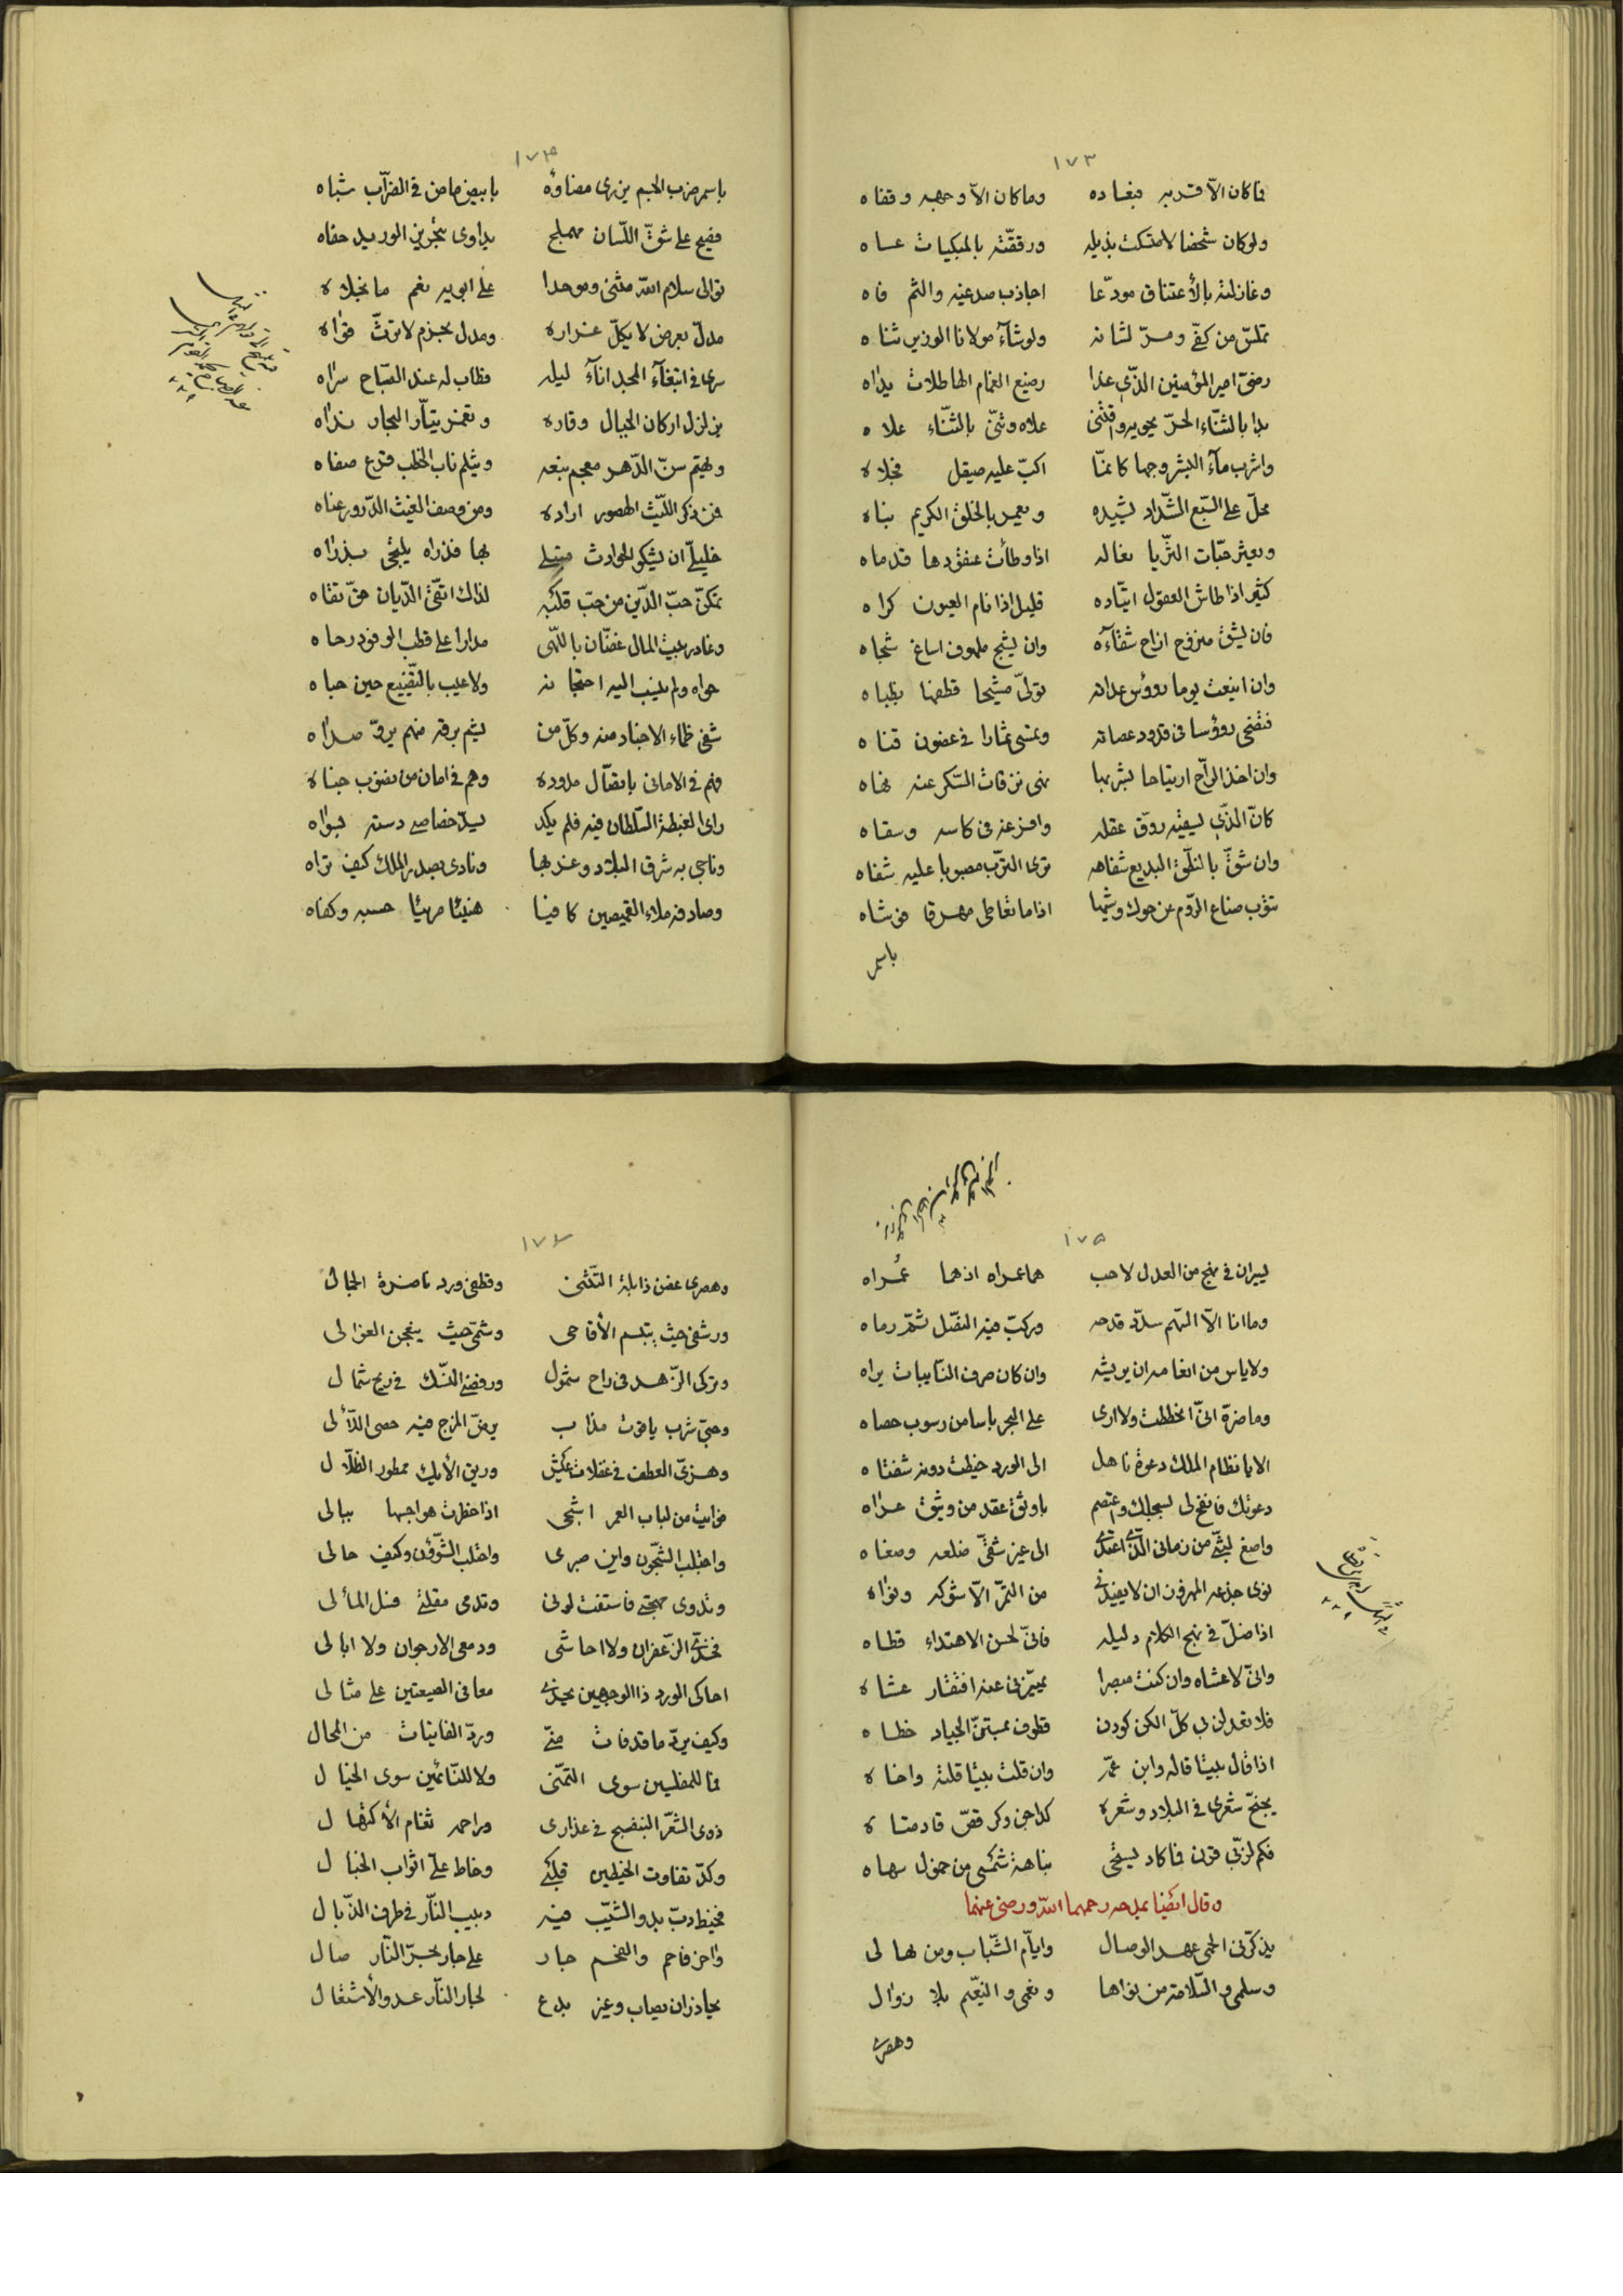 ١٧٣
فما كان الا قدير فبغاده وما كان الا وجهه وقفاه
ولو كان شخصا لامتسكت بذيله ورققته بالمبكيات عساه
وغازلته بالأعتناق مودّعا اجاذب صدغيه والثم فاه
تملّق من كفّى ومرّ لشانه ولو شآء مولانا الوزير ثناه
رضىّ امير المؤمنين الذّى غدا رضيع الغمام الهاطلات يداه
بدا بالثّناء الحرّ يحويه واقتنى علاه وثنّى بالثّناء علاه
واشرب مآء البشر وجها كانمّا اكبّ عليه صيقل فجلاه
محلّ على السّبع الشّداد يشيده ويعمر بالخلق الكريم بناه
ويعثر حبّات الثّريا نعاله اذا وطأت عنقودها قدماه
كثير اذا طاش العقول اتيّاده قليل اذا نام العيون كراه
فان يشق منزوح ازاح شقآءه وان يشج ملهوف اساغ شجاه
وان اينعت يوما رووس عداته تولىّ مشيحا قطفها بظباه
فتضحى رؤوسا فى قدود عصاته وتمسى ثمارا فى غصون قناه
وان اخذ الرّاح ارتياحا لشربها نهى نزقات السّكر عنه نهاه
كانّ الذّى ليسقيه روّق عقله وافرغه فى كاسه وسقاه
وان شقّ بالنطّق البديع شفاهه ترى الترّب مصبوبا عليه شفاه
تؤب صناع الرّوم عن حوك وشيها اذا ما تعاطى مهرقا فوشاه
باسمر
١٧٤
باسمر ضرب الجسم يزرى مضاوه بابيض ماض فى الضرّاب شباه
فصيح على شقّ اللّسان مهملج يداوى بتجريز الوريد حفاه
توالى سلام الله مثنى وموحدا على ابويه نعم ما نجلاه
مدلّ بعرض لا يكلّ غراره ومدل بحزم لا ترثّ قواه
سرى فى ابتغآء المجد انآء ليله فطاب له عند الصّباح سراه
يزلزل اركان الجبال وقاره وتغمر تيّار البحار نداه
ويهتم سنّ الدّهر معجم نبعه ويثلم ناب الخطب قرع صفاه
فمن ذكر اللّيث الهصور اراده ومن وصف الغيث الدّرور عناه
خليلىّ ان يشكو الحوادث مبتلى بها فذراه يلتجى بذراه
تمكنّ حبّ الدّين من حبّ قلبه لذاك اتّقى الدّيان حقّ تقاه
وغادر بيت المال غضّان باللّهى مدارا على قطب الوفود رحاه
حواه ولم ينسب اليه احتجانه ولا عيب بالتّضييع حين حباه
شفى ظماء الاجناد منه وكلّ من يشم برقه منهم يروّ صداه
فهم فى الامانى بانصال مدوده وهم فى امان من نضوب جباه
راى الغبطة السّلطان فيه فلم يكد ليسدّ خصاصى دسته لبسواه
وناجى به شرق البلاد وغربها ونادى بصدر الملك كيف تراه
وصادفه ملاء القميصين كافيا هنيئا مريئا حسبه وكفاه
١٧٥
يسيران فى نهج من العدل لاحب هما عمراه اذ هما عُمراه
وما انا الاّ السّهم سدّد قدحه وركبّ فيه النصّل ثمّ رماه
ولا ياس من انعامه ان يريشه وان كان صرف النّايبات براه
وما ضرّه انىّ انحططت ولا ارى على البحر باسا من رسوب حصاه
الا يا نظام الملك دعوة ناهل الى الورد خيطت دونه شفتاه
دعوتك فانفخ لى بسجلك واعتصم باوثق عقد من وثيق عراه
واصغ لبثّى من زمانى الذّى اعتدى الى عيز شفّى ضلعه وصغاه
نوى جذعه المهزول ان لا يفيدنى من التمّر الاّ شوكه ونواه
اذا ضلّ فى نهج الكلام دليله فانىّ لحسن الاهتداء قطاه
وانىّ لاعشاه وان كنت مبصرا يميزّنى عنه افتقار عشاه
فلا تعدلن بى كلّ الكن كودن قطوف بمستنّ الجياد خطاه
اذا قال بيتا قاله وابن عمّه وان قلت بيتا قلته واخاه
يجنحّ شعرى فى البلاد وشعره كداجن وكر قصّ قادمتاه
فكم لزّنى قرن فما كاد ليستحى نباهة شمسى من خمول سهاه
وقال ايضا يمدحه رحمهما الله ورضى عنهما
يذكرّنى الحمى عهد الوصال وايآم الشّباب ومن بها لى
وسلمى والسّلامة من نواها ونعمى والنّعيم بلا زوال
وهصرى
١٧٦
وهصرى غصن ذابلة التّثنى وقطفى ورد ناضرة الجمال
ورشفى حيث يبتسم الأقاحى وشمّى حيث ينعجن الغزالى
وتركى الزّهد فى راح شمول ورفضى النّسك فى ريح شمال
وحبىّ شرب ياقوت مذاب يرضّ المزج فيه حصى اللاّلى
وهزىّ العطف فى غفلات عيش وريق الأيك ممطور الظلاّل
فوايت من لباب العمر اشجى اذا خطرت هواجسها ببالى
واجتلب الشّجون واين صبرى واحتلب الشّؤون وكيف حالى
وتدوى مهجتى فاستفت لونى وتدمى مقلتى فسل المألى
فخدّى الزّعفران ولا احاشى ودمعى الارجوان ولا ابالى
احاكى الورد ذا الوجهين بخدّى معافى الصبغتين على مثالى
وكيف يردّ ما قد فات منّى وردّ الفايتات من المحال
فما للمفلسين سوى التمنّى ولا للنّائمين سوى الخيال
ذوى الشّعر البنفسج فى عذارى وراحمه ثغام الأكتهال
وكدّ تفاوت الخيطين قلبى وخاط علىّ اثواب الخبال
فخيط دبّ بدو الشّيب فيه دبيب النّار فى طرف الذّبال
واخر فاحم والفحم جار على جار بحرّ النّار صال
يحاذر ان يصاب وغير بدع لجار النّار عدو الأشتعال